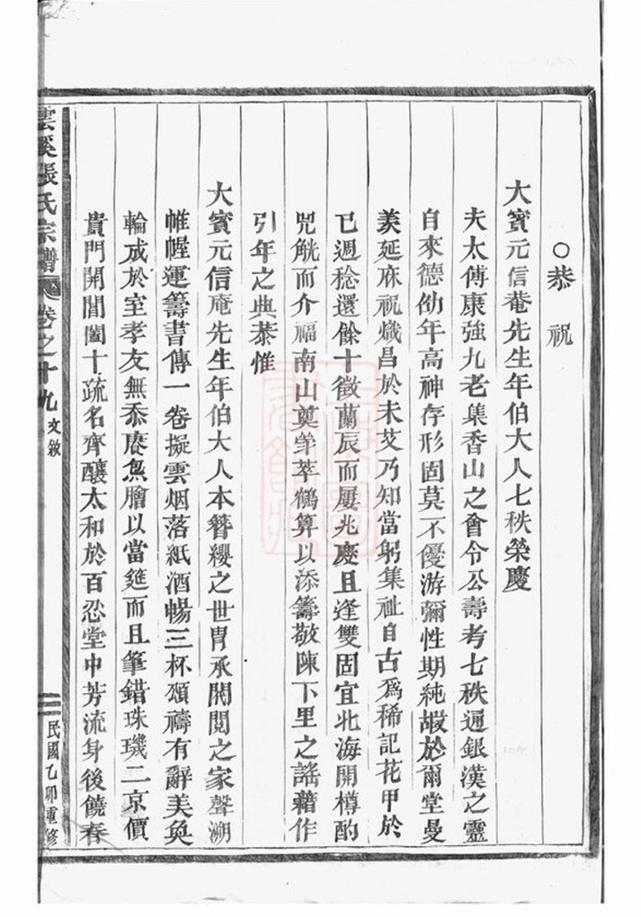 ○恭祝
大賓元信菴先生年伯大人七秩榮慶
夫太傅康強九老集香山之會令公壽考七秩通銀漢之靈
自來德劭年高神存形固莫不優游彌性期純嘏於爾堂曼
羙延庥祝熾昌於未艾乃知當躬集祉自古爲稀記花甲於
已週稔還餘十徵蘭辰而屢兆慶且逢雙固宜北海開樽酌
兕觥而介福南山奠斚萃鶴算以添籌敬陳下里之謠藉作
引年之典恭惟
大賓元信庵先生年伯大人本簪纓之世冑承閥閱之家聲溯
帷幄運籌書傳一卷擬雲烟落紙酒暢三杯頌禱有辭美奐
輪成於室孝友無忝庶魚膾以當筵而且筆錯珠璣二京價
貴門開閶闔十疏名齊釀太和於百忍堂中芳流身後饒春
雲溪張氏宗譜 卷之十九 文敘
二 民國乙卯重修